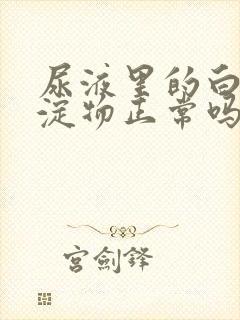 尿液里的白
淀物正常吗
宫剑锋